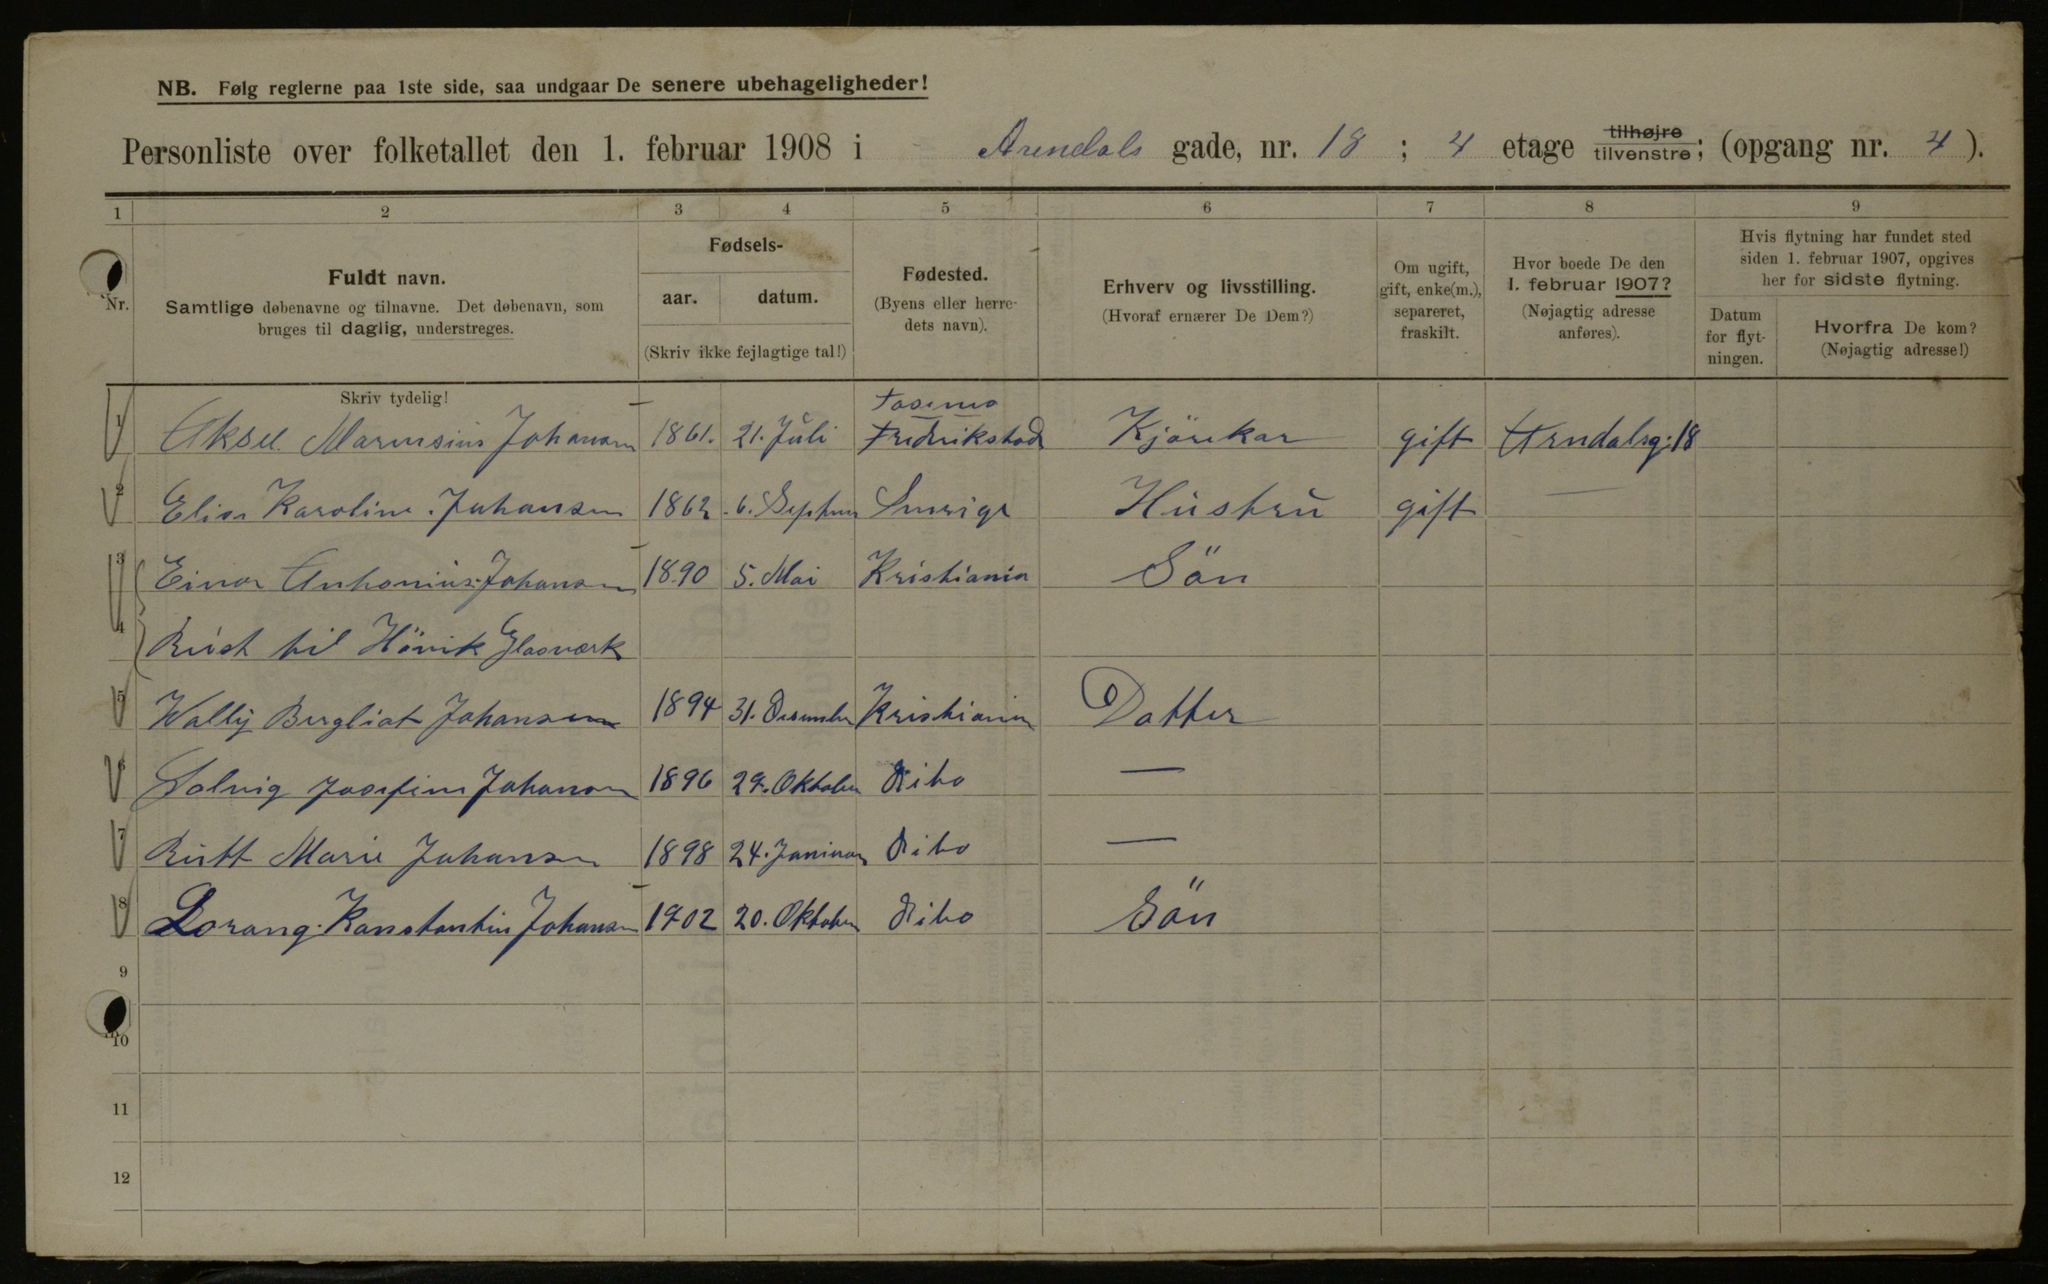 NB. Følg reglerne paa 1ste side, saa undgaar De senere ubehageligheder!
Personliste over folketallet den 1. februar 1908 i Arendals gade, nr. 18 ; 4 etage tilhøjre tilvenstre; (opgang nr. 4 ).
1 2 3 4 5 6 7 8 9
Nr.
Fuldt navn.
Samtlige døbenavne og tilnavne. Det døbenavn, som
bruges til daglig, understreges.
Fødsels-
aar. datum.
(Skriv ikke fejlagtige tal!)
Fødested.
(Byens eller herre-
dets navn).
Erhverv og livsstilling.
(Hvoraf ernærer De Dem?)
Om ugift,
gift, enke(m.),
separeret,
fraskilt.
Hvor boede De den
1. februar 1907?
(Nøjagtig adresse
anføres).
Hvis flytning har fundet sted
siden 1. februar 1907, opgives
her for sidste flytning.
Datum
for flyt-
ningen.
Hvorfra De kom?
(Nøjagtig adresse!)
Skriv tydelig!
1 Aksel Johansen 1861. 21. Juli Fredrikstad Kjörekar gift Arndalsg: 18
2 Elise Karoline Johansen 1862 6. Septem Sverige Hustru gift —
3 Einar Anthonius Johansen 1890 5. Mai Kristiania Sön
4 Reist til Hövik Glasværk
5 Wally Bergliot Johansen 1894 31. Desember Kristiania Datter
6 Solveig Josefine Johansen 1896 29. Oktober Dito —
7 Rutt Marie Johansen 1898 24. Januar Dito —
8 Lorang Konstantin Johansen 1902 20. Oktober Dito Sön
9
10
11
12